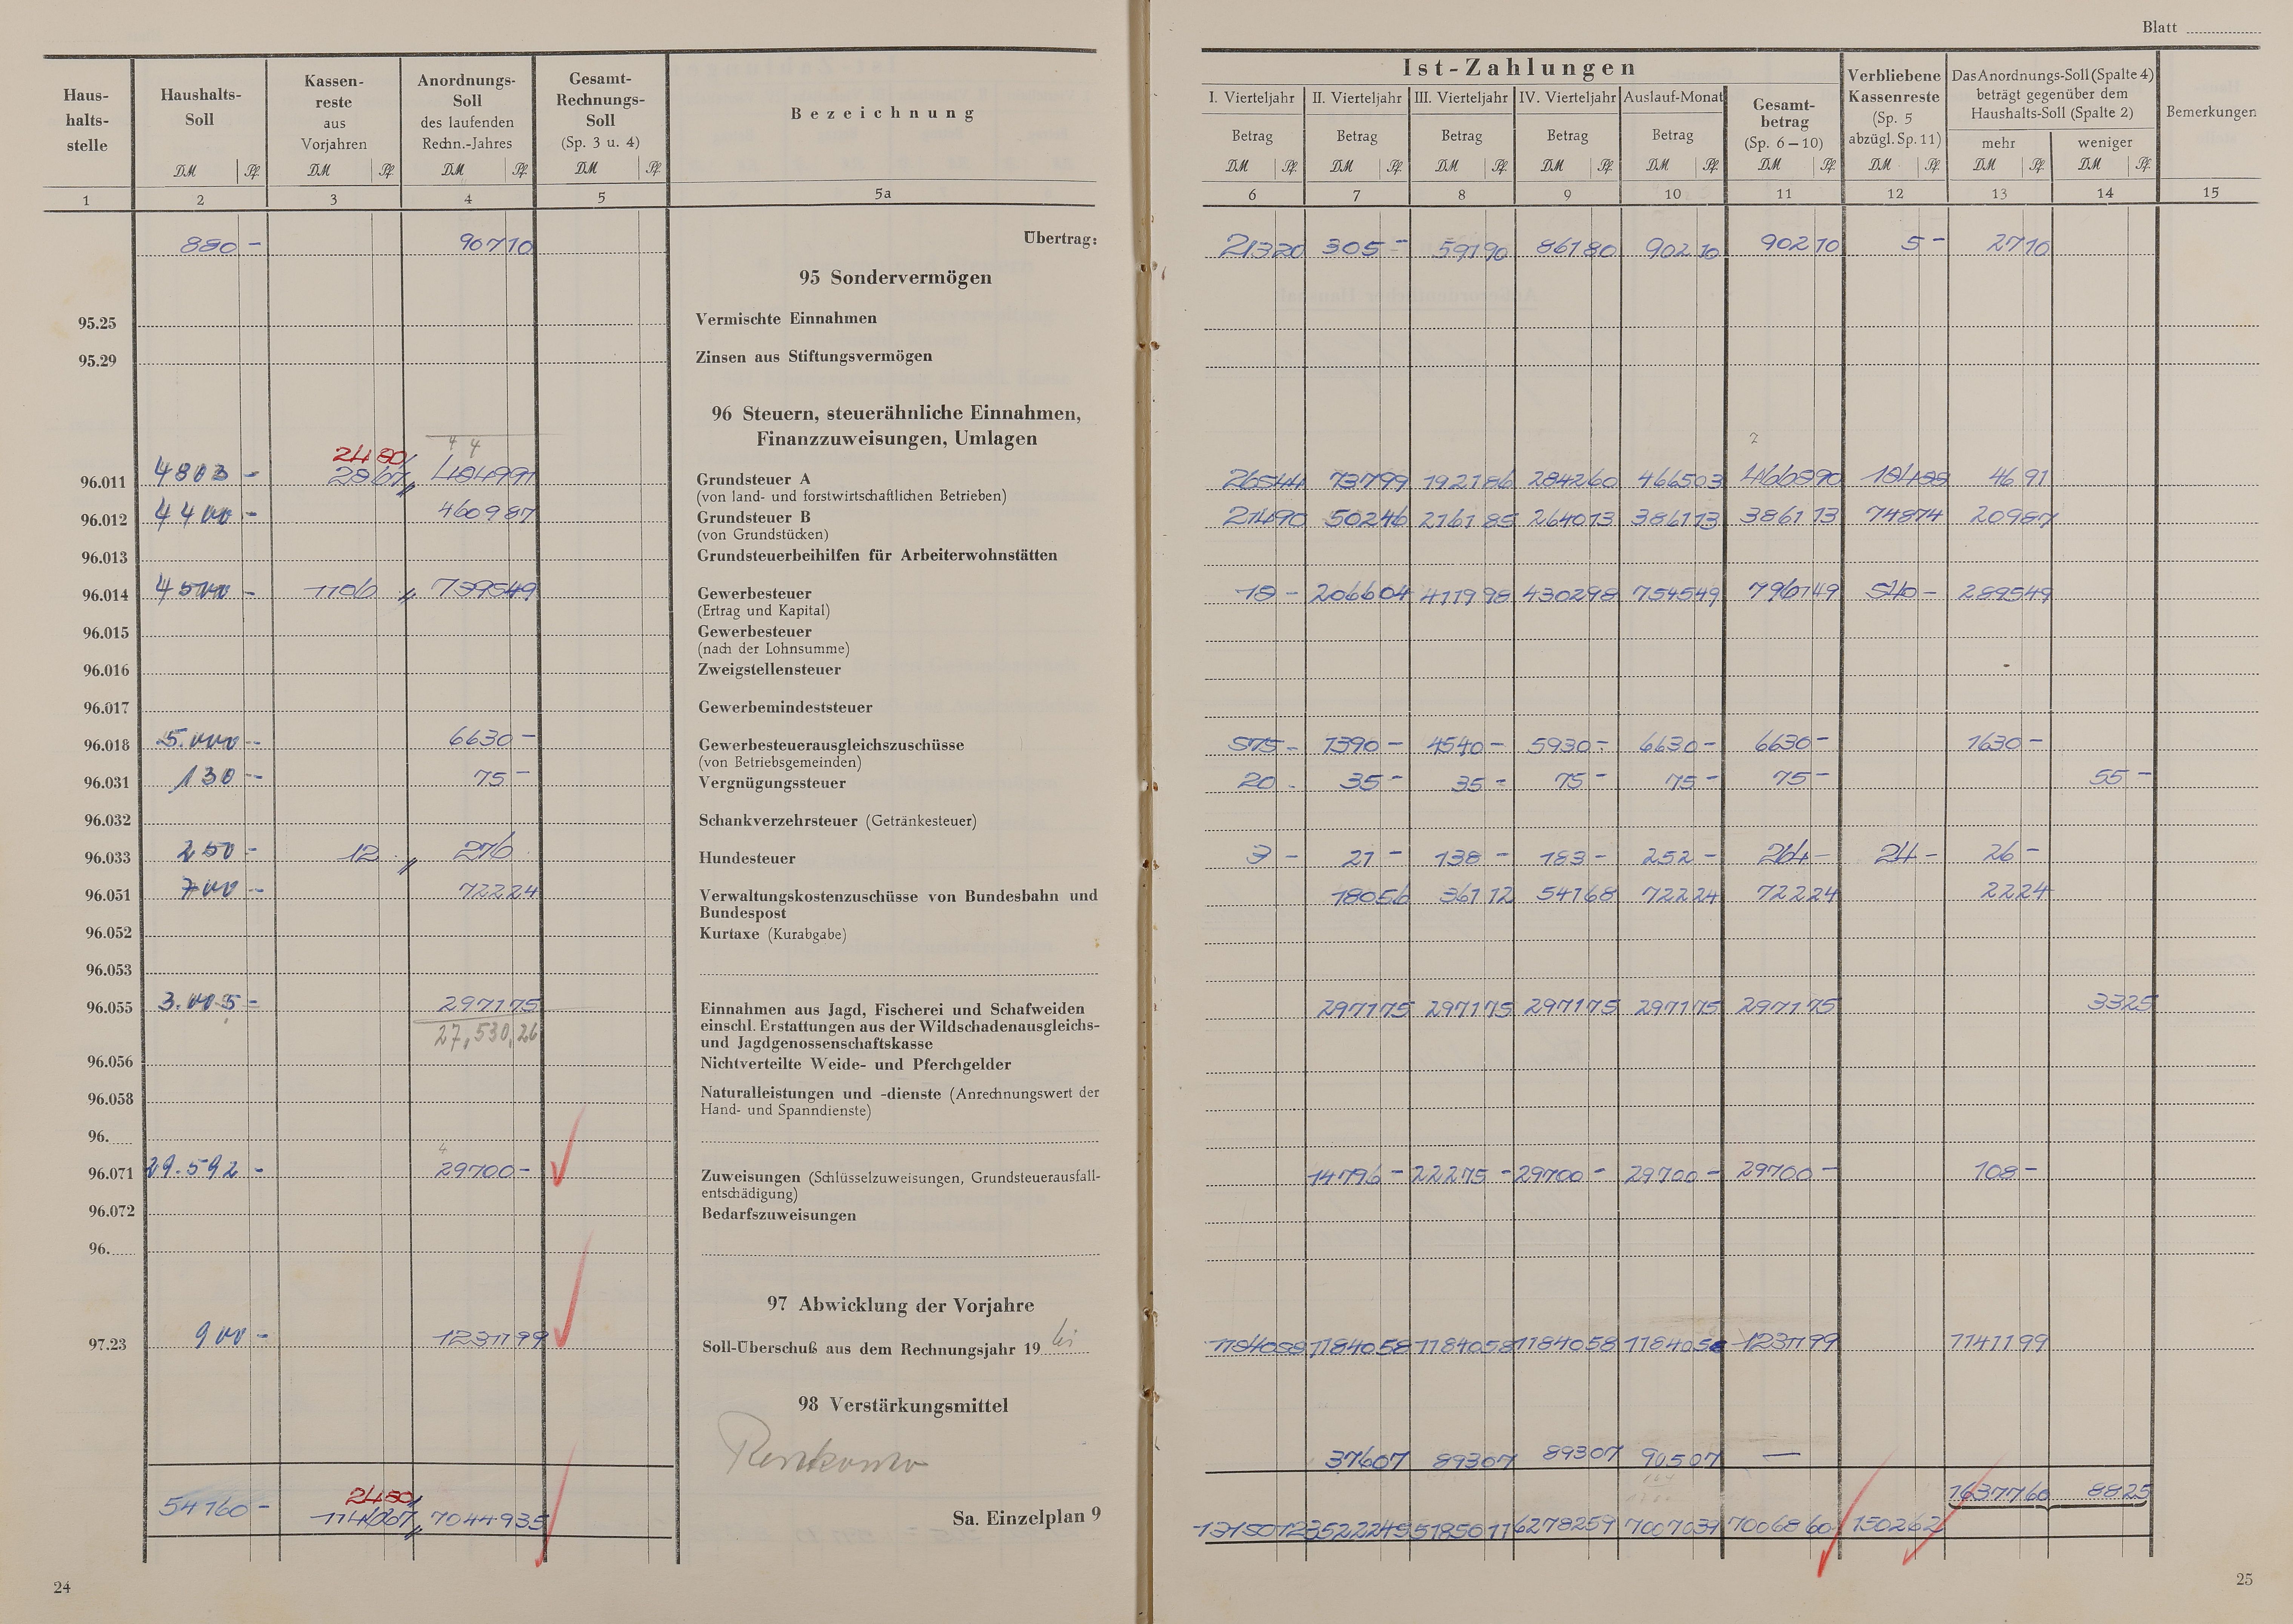 Blatt
Haus-
halts-
stelle
Haushalts-
Soll
DM Pf.
Kassen-
reste
aus
Vorjahren
DM Pf.
Anordnungs-
Soll
des laufenden
Rechn.-Jahres
DM Pf.
Gesamt-
Rechnungs-
Soll
(Sp. 3 u. 4)
DM Pf.
Bezeichnung
Ist-Zahlungen
I. Vierteljahr
Betrag
DM Pf.
II. Vierteljahr
Betrag
DM Pf.
III. Vierteljahr
Betrag
DM Pf.
IV. Vierteljahr
Betrag
DM Pf.
Auslauf-Monat
Betrag
DM Pf.
Gesamt-
betrag
(Sp. 6–10)
DM Pf.
Verbliebene
Kassenreste
(Sp. 5
abzügl. Sp. 11)
DM Pf.
Das Anordnungs-Soll (Spalte 4)
beträgt gegenüber dem
Haushalts-Soll (Spalte 2)
mehr weniger
DM Pf. DM Pf.
Bemerkungen
1 2 3 4 5 5a 6 7 8 9 10 11 12 13 14 15
880 - 907 10 Übertrag: 213 20 305 - 591 90 861 80 902 10 902 10 5 - 27 10
95 Sondervermögen
95.25 Vermischte Einnahmen
95.29 Zinsen aus Stiftungsvermögen
96 Steuern, steuerähnliche Einnahmen,
Finanzzuweisungen, Umlagen
24 80
96.011 4803 - 28 67 4849 91 Grundsteuer A 265 44 737 99 1921 86 2842 60 4665 03 46 91
(von land- und forstwirtschaftlichen Betrieben)
96.012 4400 - 4609 87 Grundsteuer B 214 90 502 46 2161 85 2640 13 3861 13 3861 13 748 74 209 87
(von Grundstücken)
96.013 Grundsteuerbeihilfen für Arbeiterwohnstätten
96.014 4500 - 1106 7395 49 Gewerbesteuer 18 - 2066 04 4119 98 4302 98 7545 49 7961 49 540 - 2895 49
(Ertrag und Kapital)
96.015 Gewerbesteuer
(nach der Lohnsumme)
96.016 Zweigstellensteuer
96.017 Gewerbemindeststeuer
96.018 5.000 - 6630 - Gewerbesteuerausgleichszuschüsse 575 - 1390 - 4540 - 5930 - 6630 - 6630 - 1630 -
(von Betriebsgemeinden)
96.031 130 - 75 - Vergnügungssteuer 20 - 35 - 35 - 75 - 75 - 75 - 55 -
96.032 Schankverzehrsteuer (Getränkesteuer)
96.033 250 - 12 276 Hundesteuer 3 - 21 - 138 - 183 - 252 - 264 - 24 - 26 -
96.051 700 - 722 24 Verwaltungskostenzuschüsse von Bundesbahn und 180 56 361 12 541 68 722 24 722 24 22 24
Bundespost
96.052 Kurtaxe (Kurabgabe)
96.053
96.055 3.005 - 2971 75 Einnahmen aus Jagd, Fischerei und Schafweiden 2971 75 2971 75 2971 75 2971 75 2971 75 33 25
27,530,26 einschl. Erstattungen aus der Wildschadenausgleichs-
und Jagdgenossenschaftskasse
96.056 Nichtverteilte Weide- und Pferchgelder
96.058 Naturalleistungen und -dienste (Anrechnungswert der
Hand- und Spanndienste)
96.
96.071 29.592 - 29700 - Zuweisungen (Schlüsselzuweisungen, Grundsteuerausfall- 14796 - 22275 - 29700 - 29700 - 29700 - 108 -
entschädigung)
96.072 Bedarfszuweisungen
96.
97 Abwicklung der Vorjahre
97.23 900 - 12311 99 Soll-Überschuß aus dem Rechnungsjahr 19 61 11840 58 11840 58 11840 58 11840 58 11840 58 12311 99 11411 99
98 Verstärkungsmittel
376 07 893 07 893 07 905 07 —
16377 60 88 25
24 80
54160 - 1146 67 70449 35 Sa. Einzelplan 9 13150 12 35222 49 51850 11 62782 59 70070 39 70068 60 1502 62
24
25